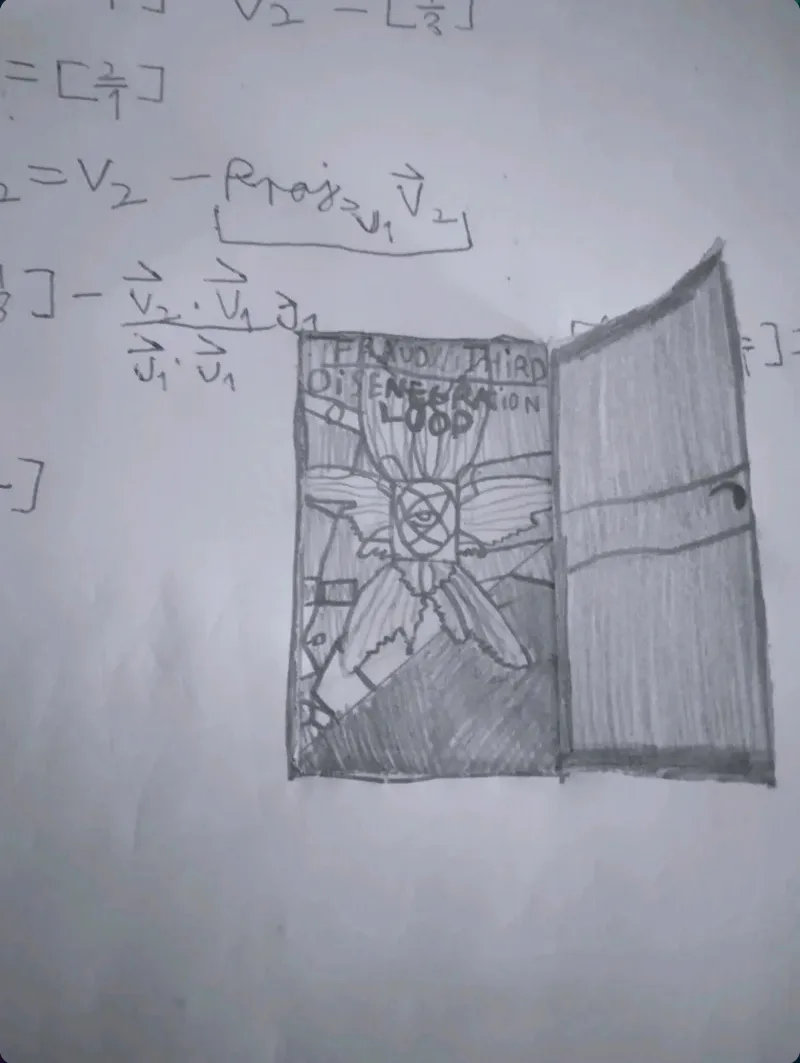 V₂ - [1/3]
= [2/1]
₂ = V₂ - Proj v₁ V₂
] - V₂ · V₁ / V₁ · V₁ V₁
]
FRAUD // THIRD
DISENEGRATION
LOOP